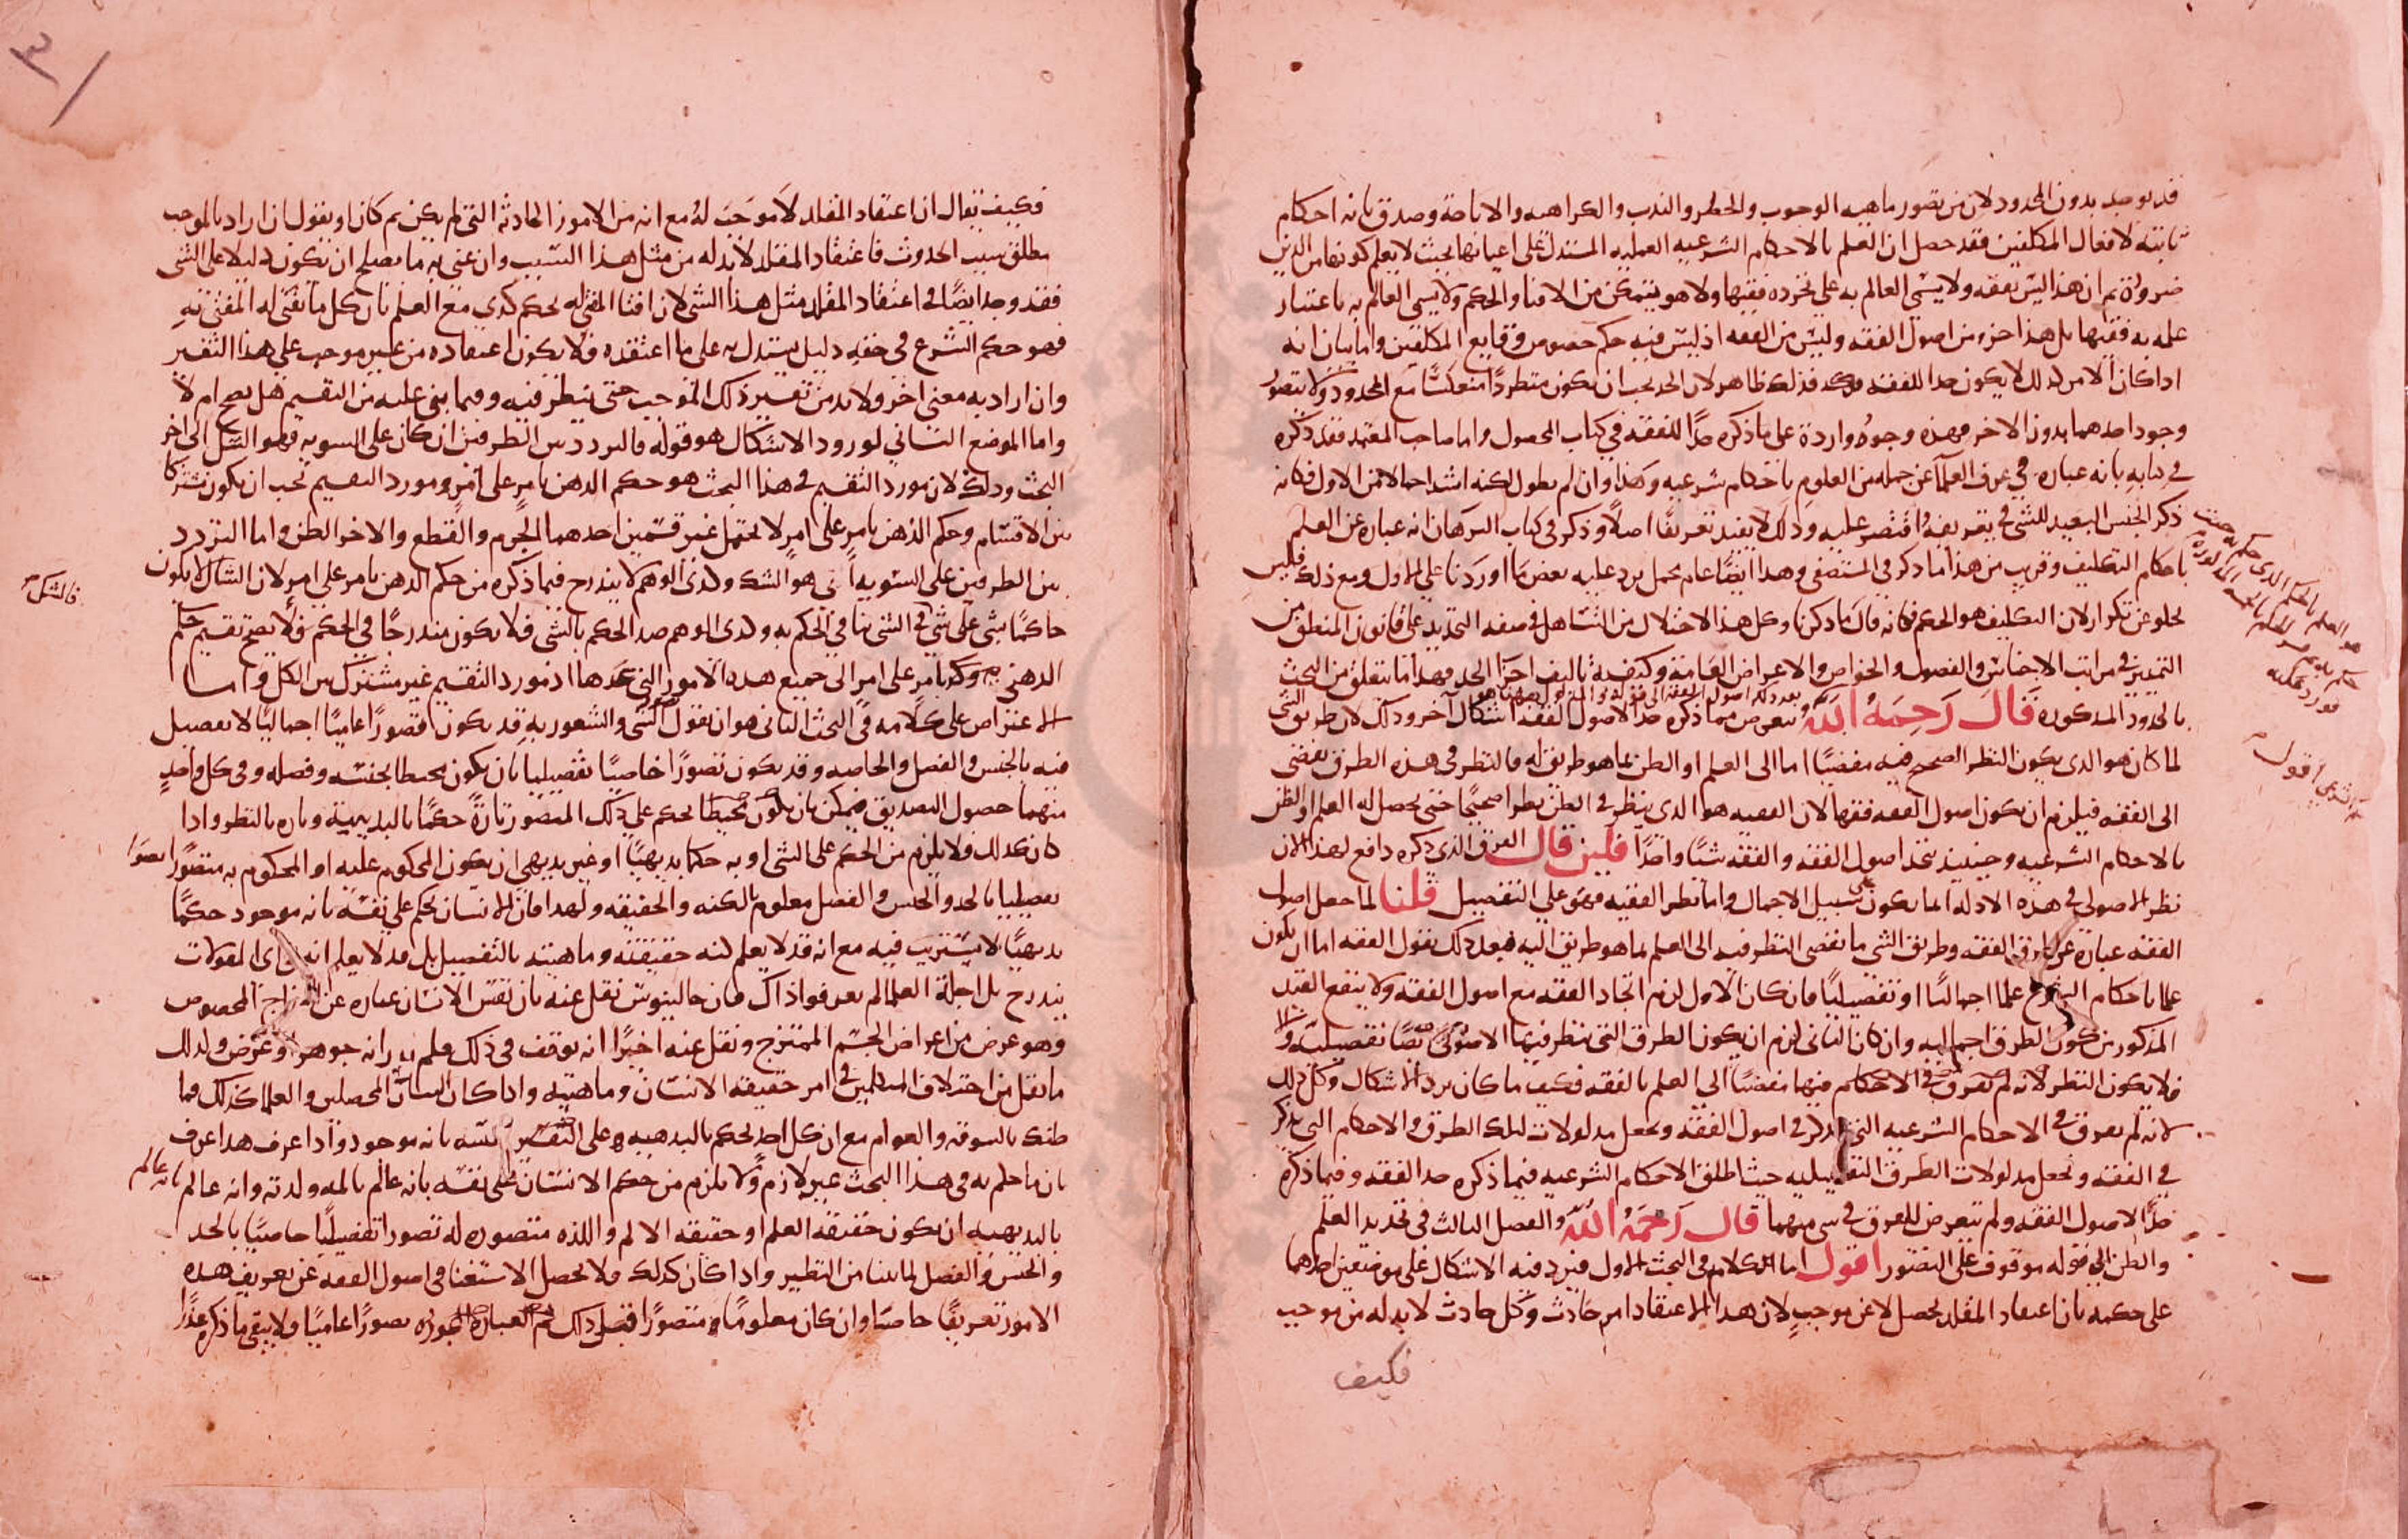 قد يوجد بدون المحدود لان من تصور ماهية الوجوب والحظر والندب والكراهية والاباحة وصدق بانه احكام
ثابتة لافعال المكلفين فقد حصل ان العلم بالاحكام الشرعية العملية المستدل على اعيانها بحيث لا يعلم كونها من الدين
ضرورة ثم ان هذا ليس بفقه ولا يسمى العالم به على تجرده فقيها ولا هو يتمكن من الافتا والحكم ولا يسمى العالم به باعتبار
علمه به فقيها بل هذا جزء من اصول الفقه وليس من الفقه اذ ليس فيه حكم خصوص وقايع المكلفين واما بيان انه
اذا كان الامر كذلك لا يكون حدا للفقه فذلك ظاهر لان الحد يجب ان يكون مطردا منعكسا مع المحدود ولا يتصور
وجود احدهما بدون الاخر فهذه وجوه واردة على ما ذكره حدا للفقه في كتاب المحصول واما صاحب المعتمد فقد ذكره
في كتابه بانه عبارة في عرف العلما عن جملة من العلوم باحكام شرعية وهذا وان لم يطول لكنه اشد اجمالا من الاول فكانه
ذكر الجنس البعيد للشي في تعريفه واقتصر عليه وذلك لا يفيد تعريفا اصلا وذكر في كتاب البرهان انه عبارة عن العلم
باحكام التكليف وقريب من هذا ما ذكر في المستصفى وهذا ايضا عام مجمل يرد عليه بعض ما اوردنا على الاول ومع ذلك فليس
يخلو عن تكرار لان التكليف هو الحكم فكانه قال ما ذكرنا وكل هذا الاختلال من التساهل في صنعه التحديد على قانون المنطق من
التمييز في مراتب الاجناس والفصول والخواص والاعراض العامة وكيفية تاليف اجزا الحد فهذا ما يتعلق من البحث
بالحدود المذكورة قال رحمه الله ويتعرض مما ذكره حدا لاصول الفقه اشكال آخر وذلك لان طريق الشي
لما كان هو الذي يكون النظر الصحيح فيه مفضيا اما الى العلم او الظن بما هو طريق له فالنظر في هذه الطرق يفضي
الى الفقه فيلزم ان يكون اصول الفقه فقها لان الفقيه هو الذي ينظر في الطرق نظرا صحيحا حتى يحصل له العلم او الظن
بالاحكام الشرعية وحينئذ يتحد اصول الفقه والفقه شيا واحدا فلين قال الفرق الذي ذكره دافع لهذا لان
نظر الاصولي في هذه الادلة انما يكون على سبيل الاجمال واما نظر الفقيه فهو على التفصيل قلنا لما جعل اصول
الفقه عبارة عن طرق الفقه وطريق الشي ما يفضي النظر فيه الى العلم بما هو طريق اليه فبعد ذلك نقول الفقه اما ان يكون
علما باحكام الشرع علما اجماليا او تفصيليا فان كان الاول لزم اتحاد الفقه مع اصول الفقه ولا ينفع القيد
المذكور من كون الطرق اجمالية وان كان الثاني لزم ان يكون الطرق التي ينظر فيها الاصولي ايضا تفصيلية والا
فلا يكون النظر لانه لم يفرق في الاحكام فيها مفضيا الى العلم بالفقه فكيف ما كان يرد الاشكال وكل ذلك
لانه لم يفرق في الاحكام الشرعية التي تذكر في اصول الفقه وتجعل مدلولات لتلك الطرق والاحكام التي تذكر
في الفقه وتجعل مدلولات الطرق التفصيلية حيث اطلق الاحكام الشرعية فيما ذكره حد الفقه وفيما ذكره
حدا لاصول الفقه ولم يتعرض للفرق في شي منهما قال رحمه الله والفصل الثالث في تحديد العلم
والظن الى قوله موقوف على التصور اقول اما الكلام في البحث الاول فيرد فيه الاشكال على موضعين احدهما
على حكمه بان اعتقاد المقلد يحصل لا عن موجب لان هذا الاعتقاد امر حادث وكل حادث لا بد له من موجب
فكيف
فكيف يقال ان اعتقاد المقلد لا موجب له مع انه من الامور الحادثة التي لم يكن ثم كان او نقول ان اراد بالموجب
مطلق سبب الحدوث فاعتقاد المقلد لا بد له من مثل هذا السبب وان عنى به ما يصلح ان يكون دليلا على الشي
فقد وجد ايضا في اعتقاد المقلد مثل هذا الشي لان افتا المفتي له بحكم كذي مع العلم بان كل ما يفتي له المفتي به
فهو حكم الشرع في حقه دليل يستدل به على ما اعتقده فلا يكون اعتقاده من غير موجب على هذا التفسير
وان اراد به معنى اخر فلا بد من تفسير ذلك الموجب حتى ينظر فيه وفيما بنى عليه من التقسيم هل يصح ام لا
واما الموضع الثاني لورود الاشكال هو قوله فالتردد بين الطرفين ان كان على السوية فهو الشك الى اخر
البحث وذلك لان مورد التقسيم في هذا البحث هو حكم الذهن بامر على امر ومورد التقسيم يجب ان يكون مشتركا
بين الاقسام وحكم الذهن بامر على امر لا يحتمل غير قسمين احدهما الجزم والقطع والاخر الظن واما التردد
بين الطرفين على السوية اي هو الشك وكذى الوهم لا يندرج فيما ذكره من حكم الذهن بامر على امر لان الشاك لا يكون
حاكما بشي على شي اذ الشي ينافي الحكم به وكذى الوهم ضد الحكم بالشي فلا يكون مندرجا في الحكم فلا يصح تقسيم حكم
الذهني بامر على امر الى جميع هذه الامور التي عدها اذ مورد التقسيم غير مشترك بين الكل واما
الاعتراض على كلامه في البحث الثاني هو ان نقول الشي والشعور به قد يكون تصورا عاميا اجماليا لا تفصيل
فيه بالجنس والفصل والخاصة وقد يكون تصورا خاصيا تفصيليا بان يكون محيطا بجنسه وفصله وفي كل واحد
منهما حصول التصديق فيمكن بان يكون محيطا يحكم على ذلك المتصور تارة حكما بالبديهية وتارة بالنظر واذا
كان كذلك فلا يلزم من الحكم على الشي او به حكما بديهيا او غير بديهي ان يكون المحكوم عليه او المحكوم به متصورا تصورا
تفصيليا بالحد والجنس والفصل معلوم بالكنه والحقيقة ولهذا فان الانسان يحكم على نفسه بانه موجود حكما
بديهيا لا يستريب فيه مع انه قد لا يعلم كنه حقيقته وماهيته بالتفصيل بل قد لا يعلم انه في اي المقولات
يندرج بل اجلة العلما لم يعرفوا ذاك فان جالينوس نقل عنه بان نفس الانسان عبارة عن المزاج المخصوص
وهو عرض من اعراض الجسم الممتزج ونقل عنه اخيرا انه توقف في ذلك فلم يدر انه جوهر او عرض وكذلك
ما نقل من اختلاف المتكلمين في امر حقيقة الانسان وماهيته واذا كان الشان المحصلين والعلما كذلك فما
ظنك بالسوقة والعوام مع ان كل احد يحكم بالبديهية على نفسه بانه موجود واذا عرف هذا عرف
بان ما حكم به في هذا البحث غير لازم ولا يلزم من حكم الانسان على نفسه بانه عالم بالمه ولذته وانه عالم بانه عالم
بالبديهية ان يكون حقيقة العلم او حقيقة الالم واللذة متصورة له تصورا تفصيليا خاصيا بالحد
والجنس والفصل لما بينا من النظير واذا كان كذلك فلا يحصل الاستغنا في اصول الفقه عن تعريف هذه
الامور تعريفا خاصيا وان كان معلوما متصورا قبل ذلك تصورا عاميا ولا يبقى ما ذكره عذرا